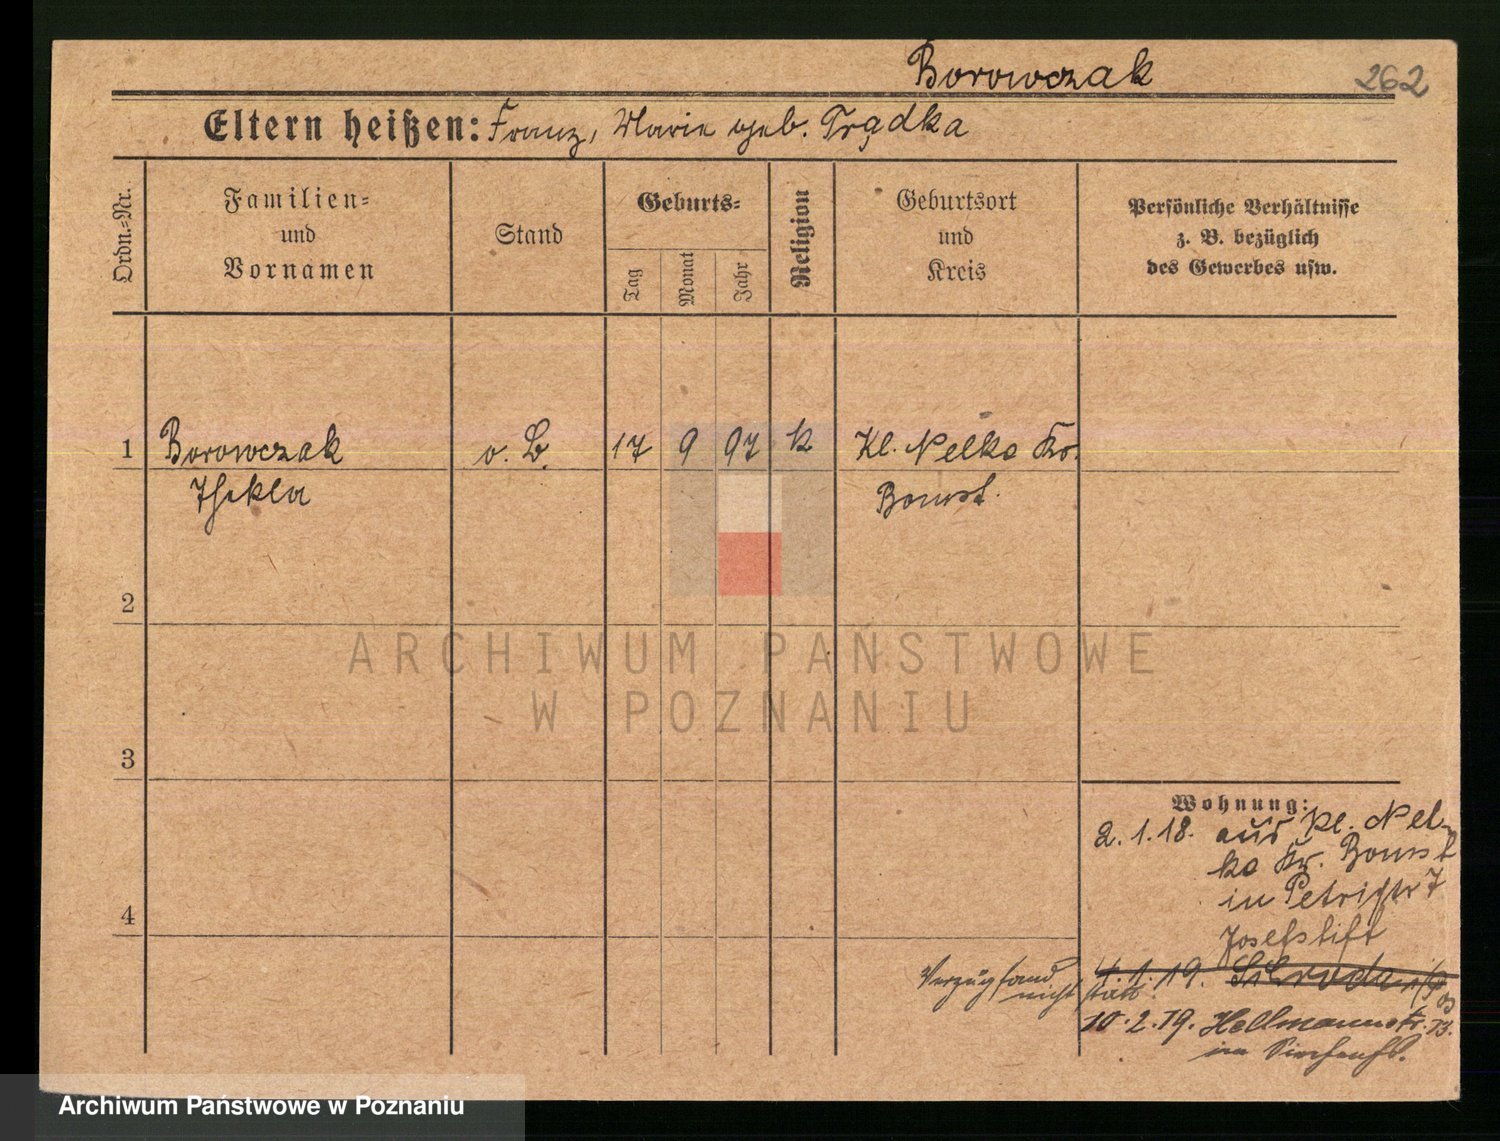 Borowczak 262
Eltern heißen: Franz, Marie geb. Trądka
Ordn.-Nr.
Familien-
und
Vornamen
Stand
Geburts-
Tag
Monat
Jahr
Religion
Geburtsort
und
Kreis
Persönliche Verhältnisse
z. B. bezüglich
des Gewerbes usw.
1 Borowczak o. B. 17 9 97 k Kl. Nelke Kr.
Thekla Bomst.
2
ARCHIWUM PAŃSTWOWE
W POZNANIU
3
4
Wohnung:
2.1.18. aus Kl. Nel-
ke Kr. Bomst
in Petristr 7
Josefstift
Verzug fand 4.1.19. Schroda
nicht statt.
10.2.19. Hellmannstr. 13.
Archiwum Państwowe w Poznaniu